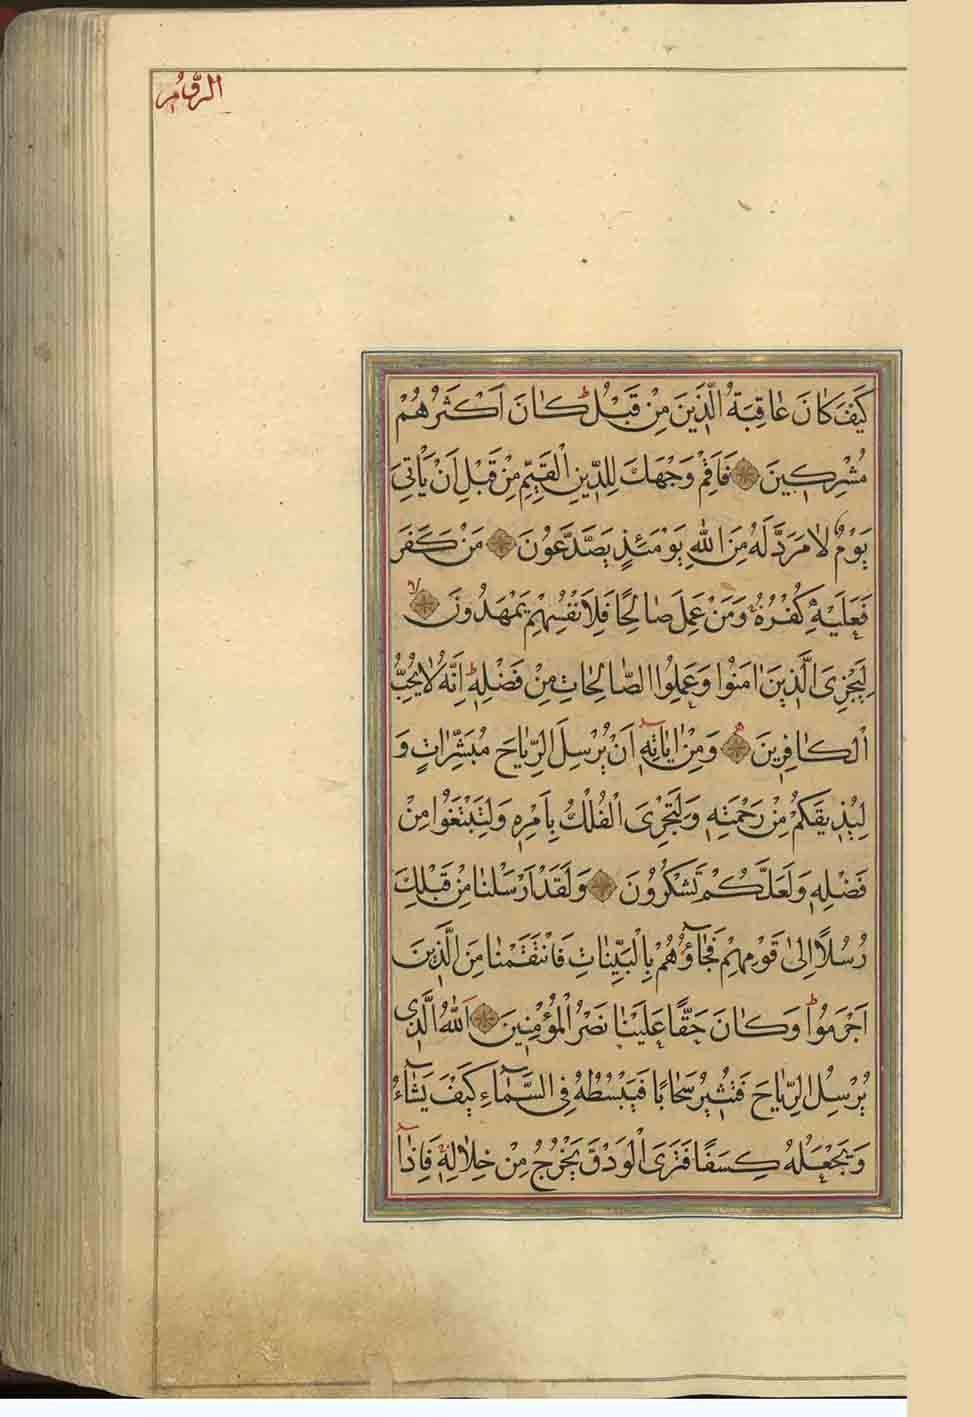 الرّوُم
كَيْفَ كَانَ عَاقِبَةُ الَّذِينَ مِنْ قَبْلُ كَانَ اَكْثَرُهُمْ
مُشْرِكِينَ فَاَقِمْ وَجْهَكَ لِلدِّينِ الْقَيِّمِ مِنْ قَبْلِ اَنْ يَاْتِىَ
يَوْمٌ لَا مَرَدَّ لَهُ مِنَ اللهِ يَوْمَئِذٍ يَصَّدَّعُونَ مَنْ كَفَرَ
فَعَلَيْهِ كُفْرُهُ وَمَنْ عَمِلَ صَالِحًا فَلِاَنْفُسِهِمْ يَمْهَدُونَ
لِيَجْزِىَ الَّذِينَ اٰمَنُوا وَعَمِلُوا الصَّالِحَاتِ مِنْ فَضْلِهِ اِنَّهُ لَا يُحِبُّ
الْكَافِرِينَ وَمِنْ اٰيَاتِهِ اَنْ يُرْسِلَ الرِّيَاحَ مُبَشِّرَاتٍ وَ
لِيُذِيقَكُمْ مِنْ رَحْمَتِهِ وَلِتَجْرِىَ الْفُلْكُ بِاَمْرِهِ وَلِتَبْتَغُوا مِنْ
فَضْلِهِ وَلَعَلَّكُمْ تَشْكُرُونَ وَلَقَدْ اَرْسَلْنَا مِنْ قَبْلِكَ
رُسُلًا اِلٰى قَوْمِهِمْ فَجَآؤُهُمْ بِالْبَيِّنَاتِ فَانْتَقَمْنَا مِنَ الَّذِينَ
اَجْرَمُوا وَكَانَ حَقًّا عَلَيْنَا نَصْرُ الْمُؤْمِنِينَ اَللهُ الَّذِى
يُرْسِلُ الرِّيَاحَ فَتُثِيرُ سَحَابًا فَيَبْسُطُهُ فِى السَّمَآءِ كَيْفَ يَشَآءُ
وَيَجْعَلُهُ كِسَفًا فَتَرَى الْوَدْقَ يَخْرُجُ مِنْ خِلَالِهِ فَاِذَآ